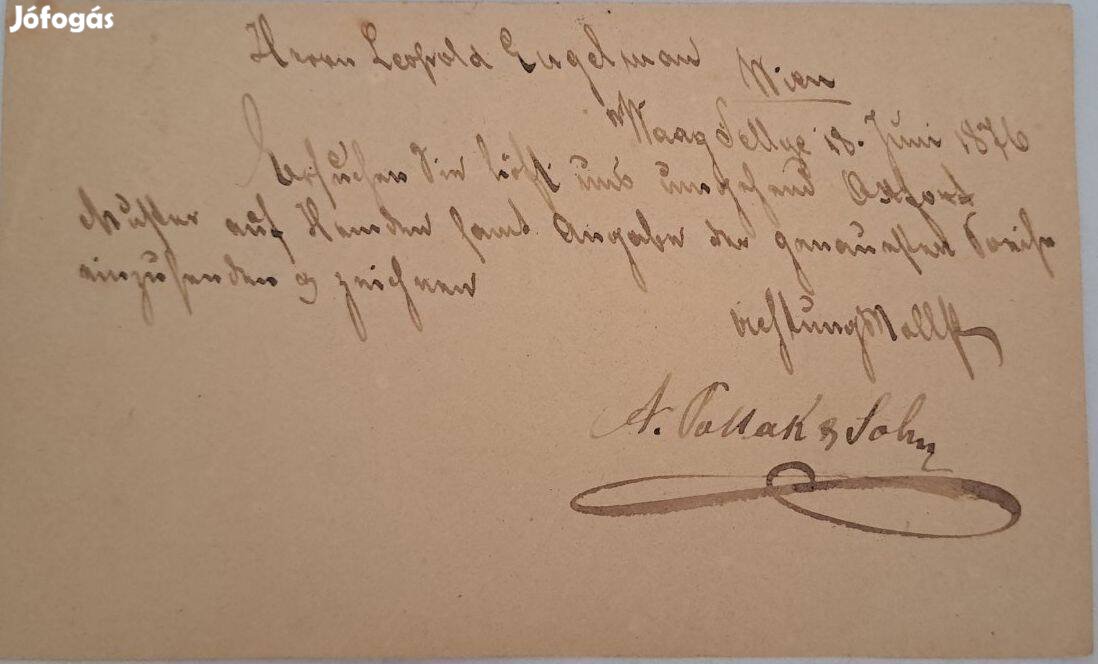 Jófogás
Herrn Leopold Engelman Wien
Waag Sellye 18. Juni 1876
Ersuchen Sie höfl uns umgehend Oxford
Muster auf Hemden samt Angabe der genauesten Preise
einzusenden & zeichnen
Achtungsvollst
A. Pollak & Sohn